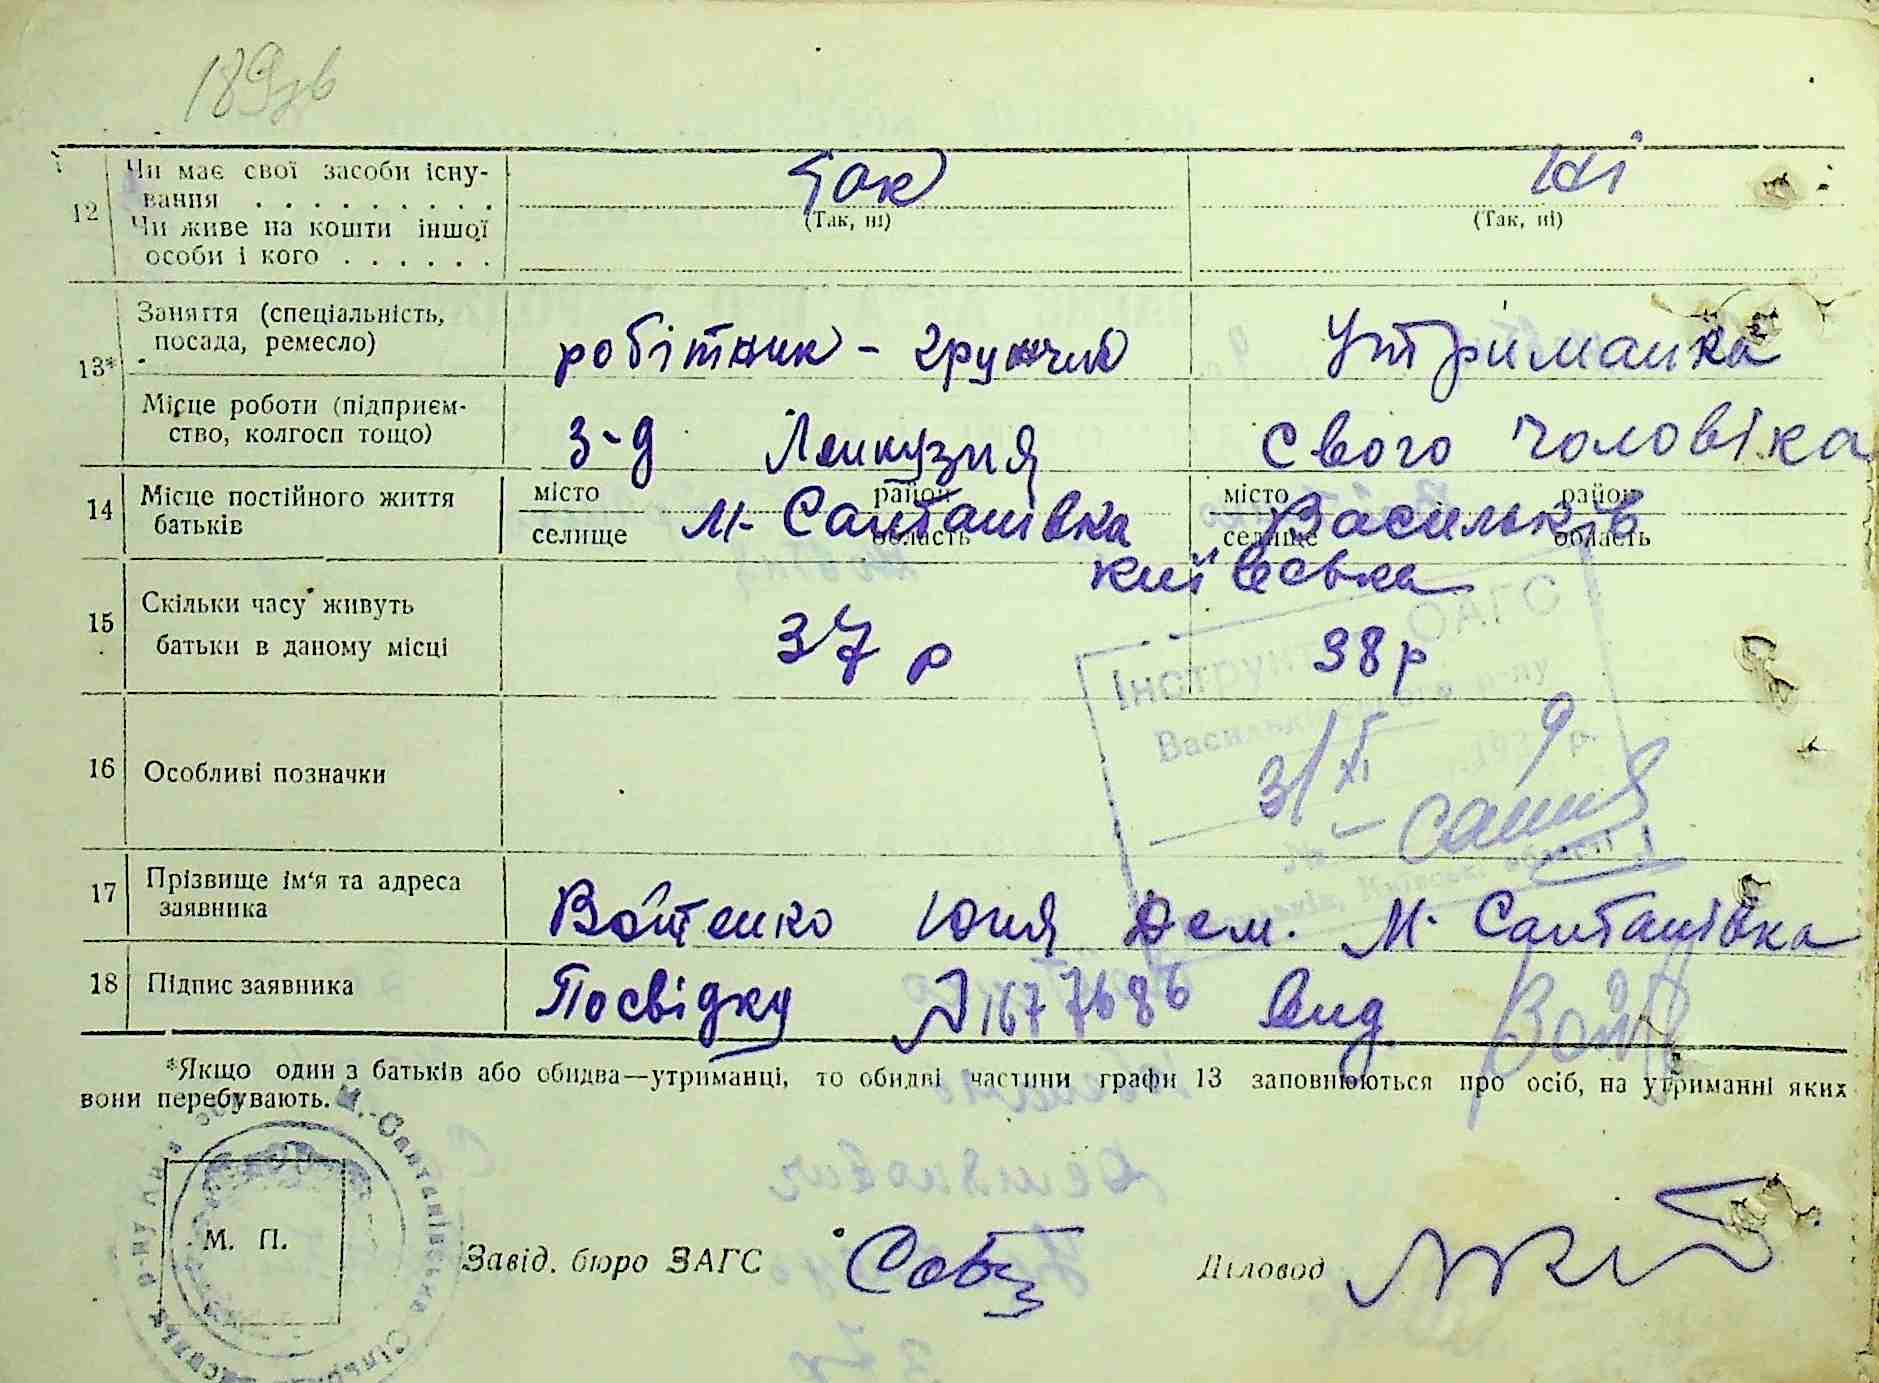 189зв
12 Чи має свої засоби існу-
вання . . . . . . . . . Так Ні
(Так, ні) (Так, ні)
Чи живе на кошти іншої
особи і кого . . . . . .
13* Заняття (спеціальність,
посада, ремесло) робітник - Утриманка
Місце роботи (підприєм-
ство, колгосп тощо) З-д свого чоловіка
14 Місце постійного життя
батьків місто район місто район
селище область селище область
М- Салтанівка Васильків
київська
15 Скільки часу живуть
батьки в даному місці 37 р 38 р
16 Особливі позначки
Інструкт ОАГС
Васильківського р-ну
31/XI 9
Київської області
17 Прізвище ім'я та адреса
заявника Войтенко Юля Дем. М. Салтанівка
18 Підпис заявника Посвідку вид
*Якщо один з батьків або обидва—утриманці, то обидві частини графи 13 заповнюються про осіб, на утриманні яких
вони перебувають.
М.-Салтанівська Сільр
М. П.
Завід. бюро ЗАГС Діловод